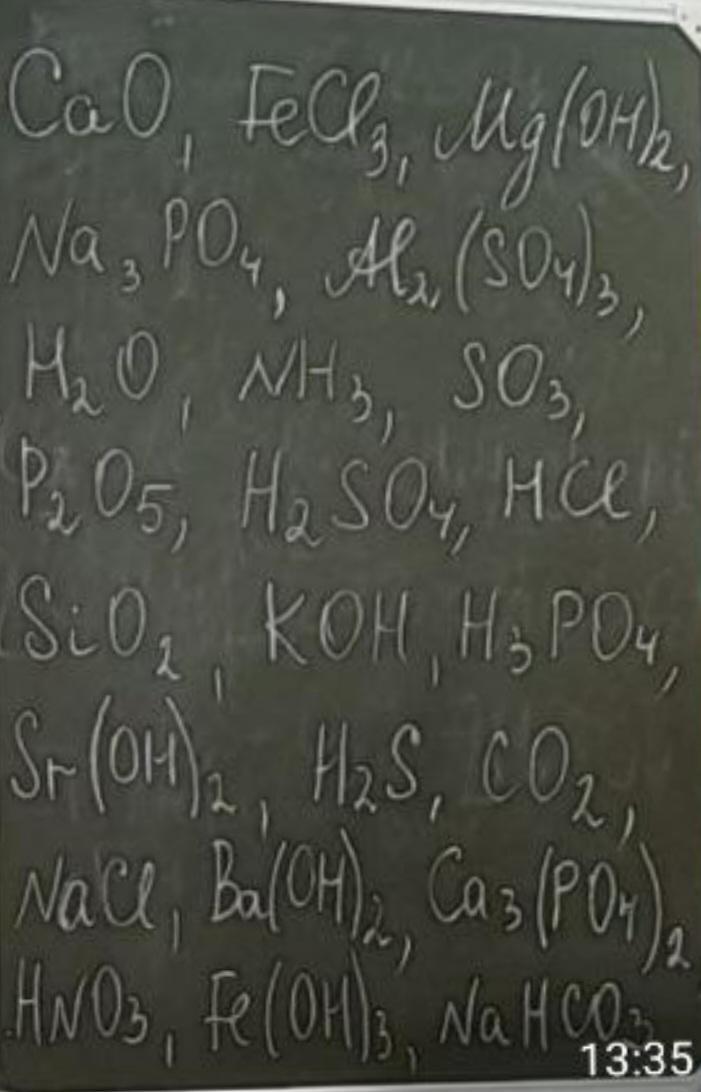 CaO, FeCl₃, Mg(OH)₂,
Na₃PO₄, Al₂(SO₄)₃,
H₂O, NH₃, SO₃,
P₂O₅, H₂SO₄, HCl,
SiO₂, KOH, H₃PO₄,
Sr(OH)₂, H₂S, CO₂,
NaCl, Ba(OH)₂, Ca₃(PO₄)₂
HNO₃, Fe(OH)₃, NaHCO₃
13:35